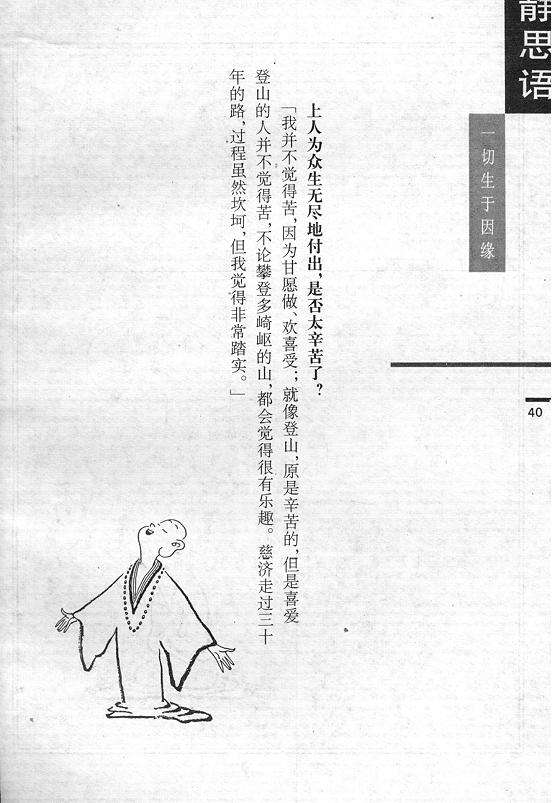 静思语
一切生于因缘
40
上人为众生无尽地付出，是否太辛苦了？
「我并不觉得苦，因为甘愿做、欢喜受；就像登山，原是辛苦的，但是喜爱
登山的人并不觉得苦，不论攀登多崎岖的山，都会觉得很有乐趣。慈济走过三十
年的路，过程虽然坎坷，但我觉得非常踏实。」